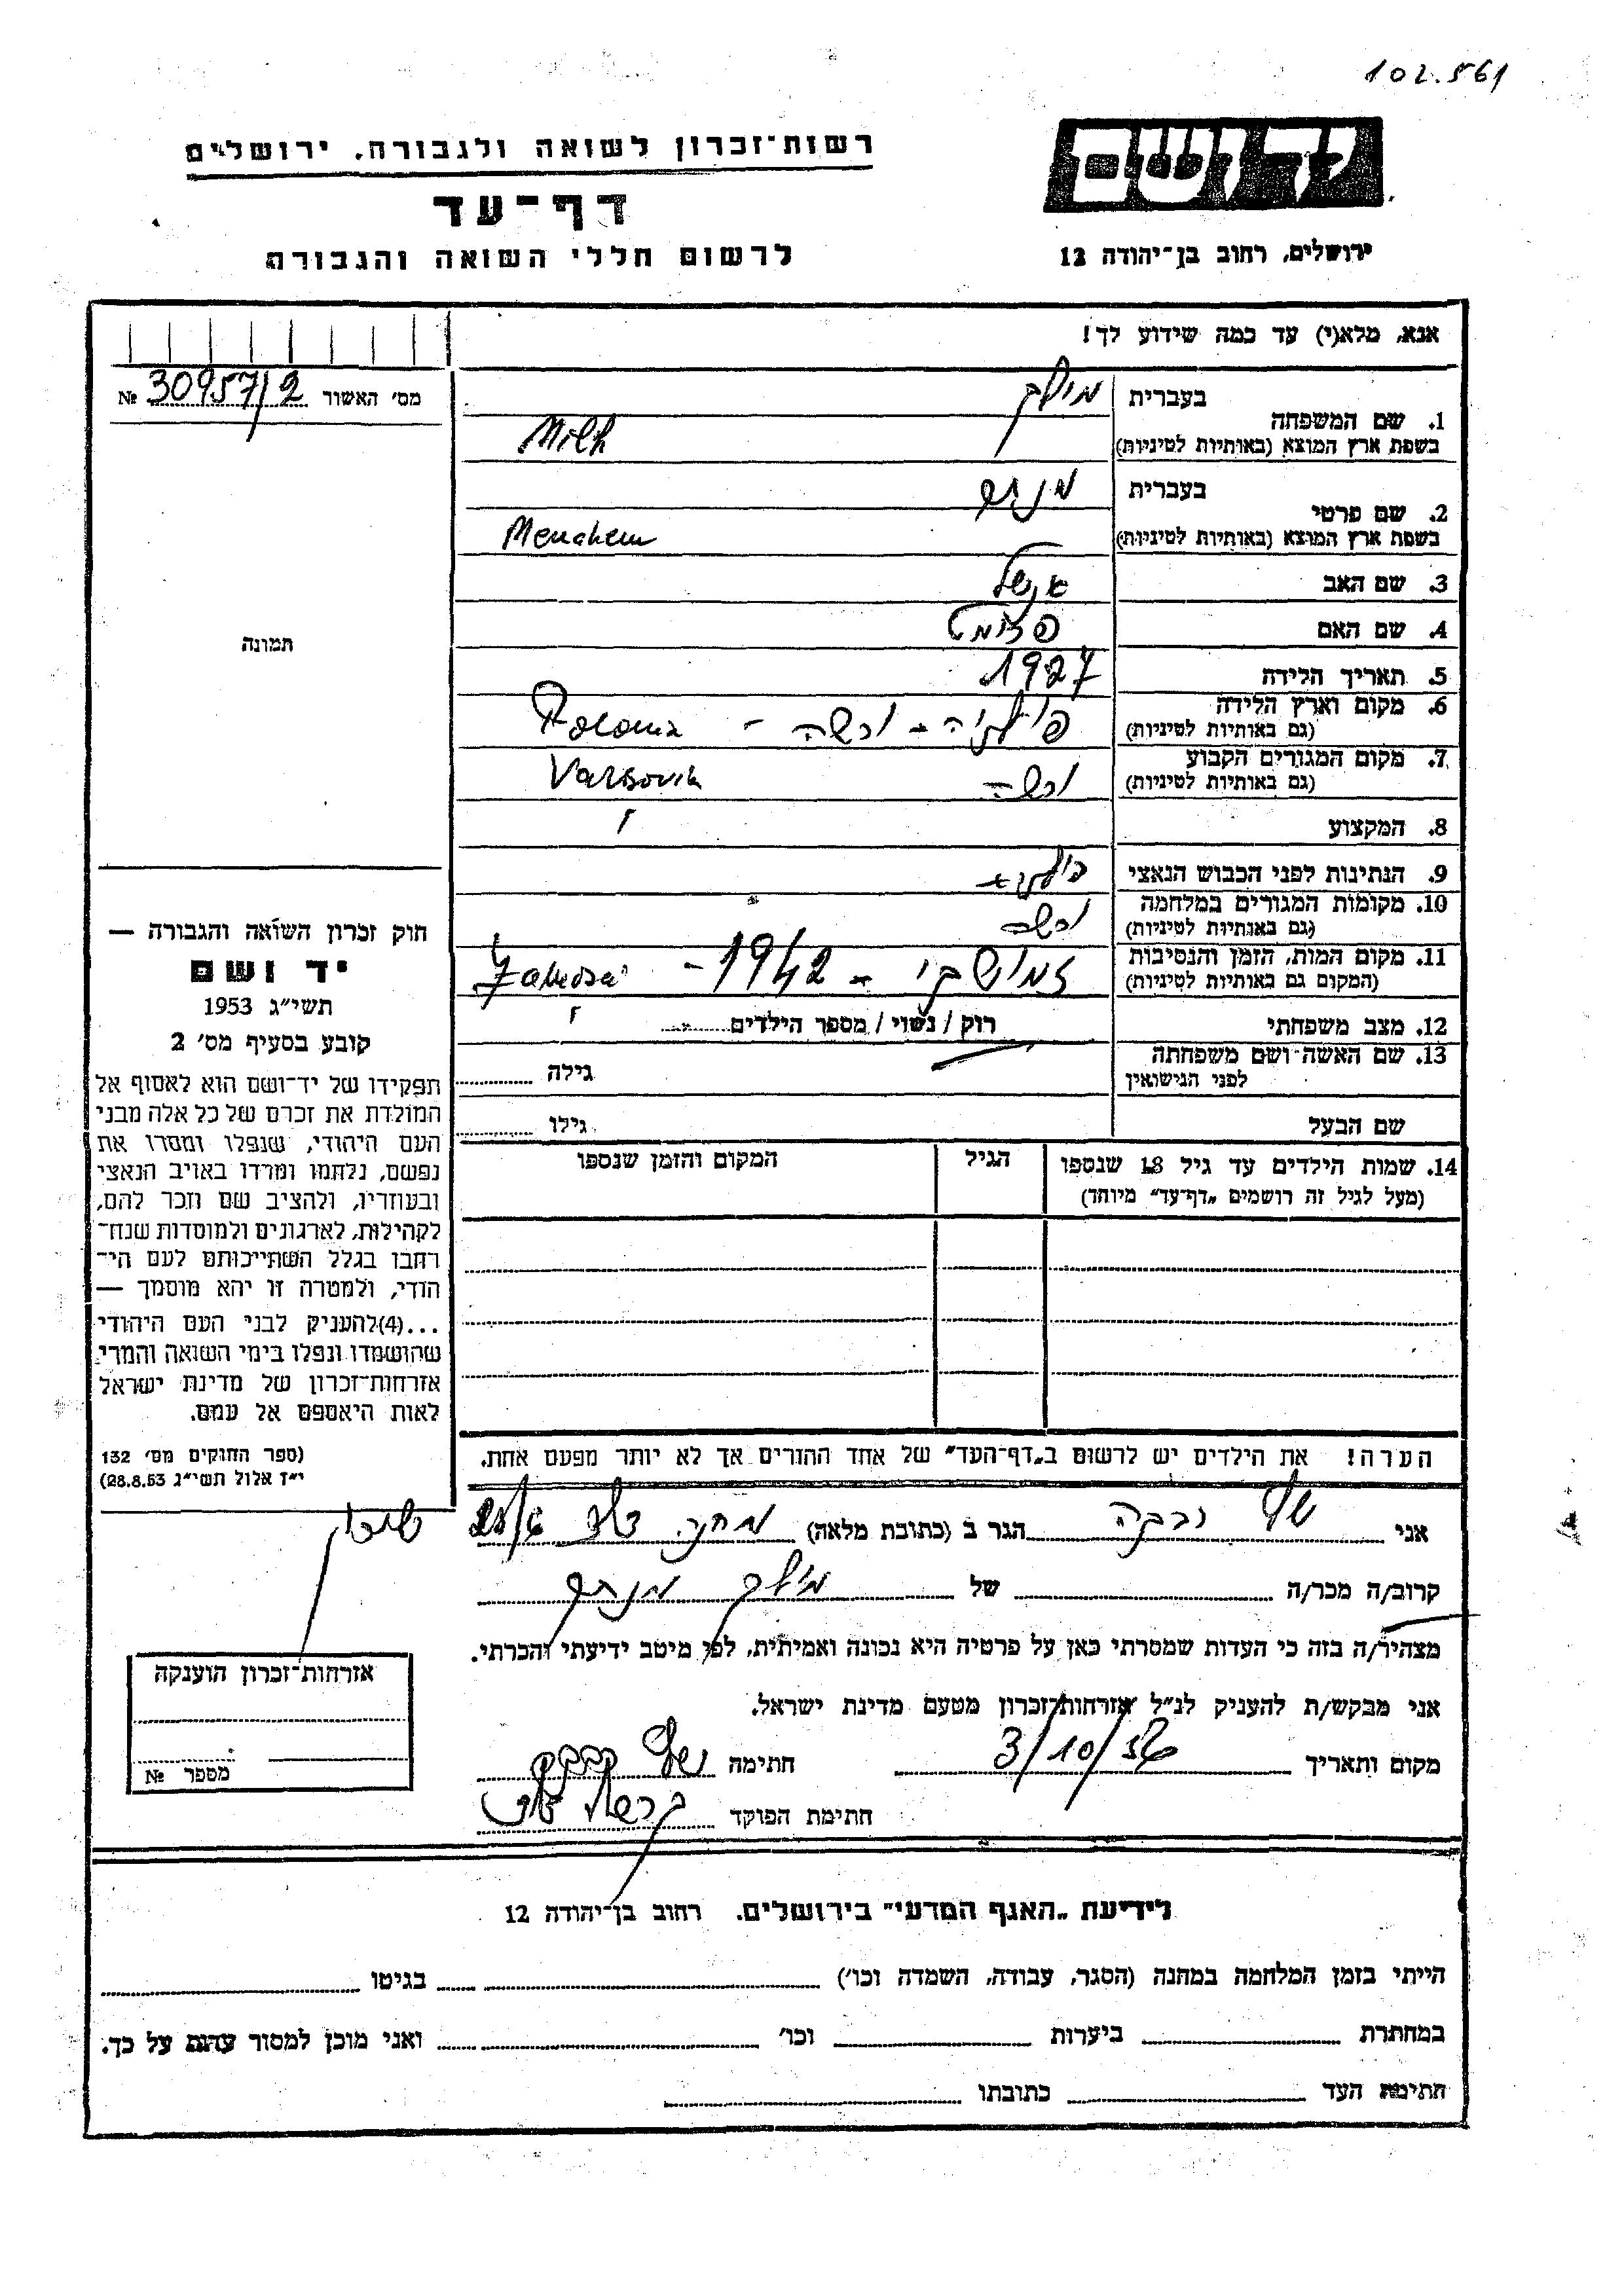 102.561
יד ושם
רשות־זכרון לשואה ולגבורה, ירושלים
דף־עד
לרשום חללי השואה והגבורה
ירושלים, רחוב בן־יהודה 12
אנא, מלא(י) עד כמה שידוע לך!
מס׳ האשור 30957/2 №
1. שם המשפחה בעברית מילך
בשפת ארץ המוצא (באותיות לטיניות) Milh
2. שם פרטי בעברית מנחם
בשפת ארץ המוצא (באותיות לטיניות) Menahem
3. שם האב אנשל
4. שם האם
5. תאריך הלידה 1927
6. מקום וארץ הלידה פולניה - ורשה - Polonia
(גם באותיות לטיניות)
7. מקום המגורים הקבוע ורשה Varsovia
(גם באותיות לטיניות)
8. המקצוע
9. הנתינות לפני הכבוש הנאצי פולנית
10. מקומות המגורים במלחמה ורשה
(גם באותיות לטיניות)
11. מקום המות, הזמן והנסיבות - 1942 -
(המקום גם באותיות לטיניות)
12. מצב משפחתי רוק / נשוי / מספר הילדים
13. שם האשה ושם משפחתה
לפני הנישואין גילה
שם הבעל גילו
14. שמות הילדים עד גיל 18 שנספו הגיל המקום והזמן שנספו
(מעל לגיל זה רושמים „דף־עד״ מיוחד)
תמונה
חוק זכרון השואה והגבורה —
יד ושם
תשי״ג 1953
קובע בסעיף מס׳ 2
תפקידו של יד־ושם הוא לאסוף אל
המולדת את זכרם של כל אלה מבני
העם היהודי, שנפלו ומסרו את
נפשם, נלחמו ומרדו באויב הנאצי
ובעוזריו, ולהציב שם וזכר להם,
לקהילות, לארגונים ולמוסדות שנח־
רבו בגלל השתייכותם לעם הי־
הודי, ולמטרה זו יהא מוסמך —
...(4)להעניק לבני העם היהודי
שהושמדו ונפלו בימי השואה והמרי
אזרחות־זכרון של מדינת ישראל
לאות היאספם אל עמם.
(ספר החוקים מס׳ 132
י״ז אלול תשי״ג 28.8.53)
הערה! את הילדים יש לרשום ב„דף־העד״ של אחד ההורים אך לא יותר מפעם אחת.
אני רבקה הגר ב (כתובת מלאה) מחנה
קרוב/ה מכר/ה של מילך מנחם
מצהיר/ה בזה כי העדות שמסרתי כאן על פרטיה היא נכונה ואמיתית, לפי מיטב ידיעתי והכרתי.
אני מבקש/ת להעניק לנ״ל אזרחות־זכרון מטעם מדינת ישראל.
מקום ותאריך 3/10/56 חתימה
חתימת הפוקד
אזרחות־זכרון הוענקה
מספר №
לידיעת „האגף המדעי״ בירושלים, רחוב בן־יהודה 12
הייתי בזמן המלחמה במחנה (הסגר, עבודה, השמדה וכו׳) בגיטו
במחתרת ביערות וכו׳ ואני מוכן למסור עדות על כך.
חתימת העד כתובתו